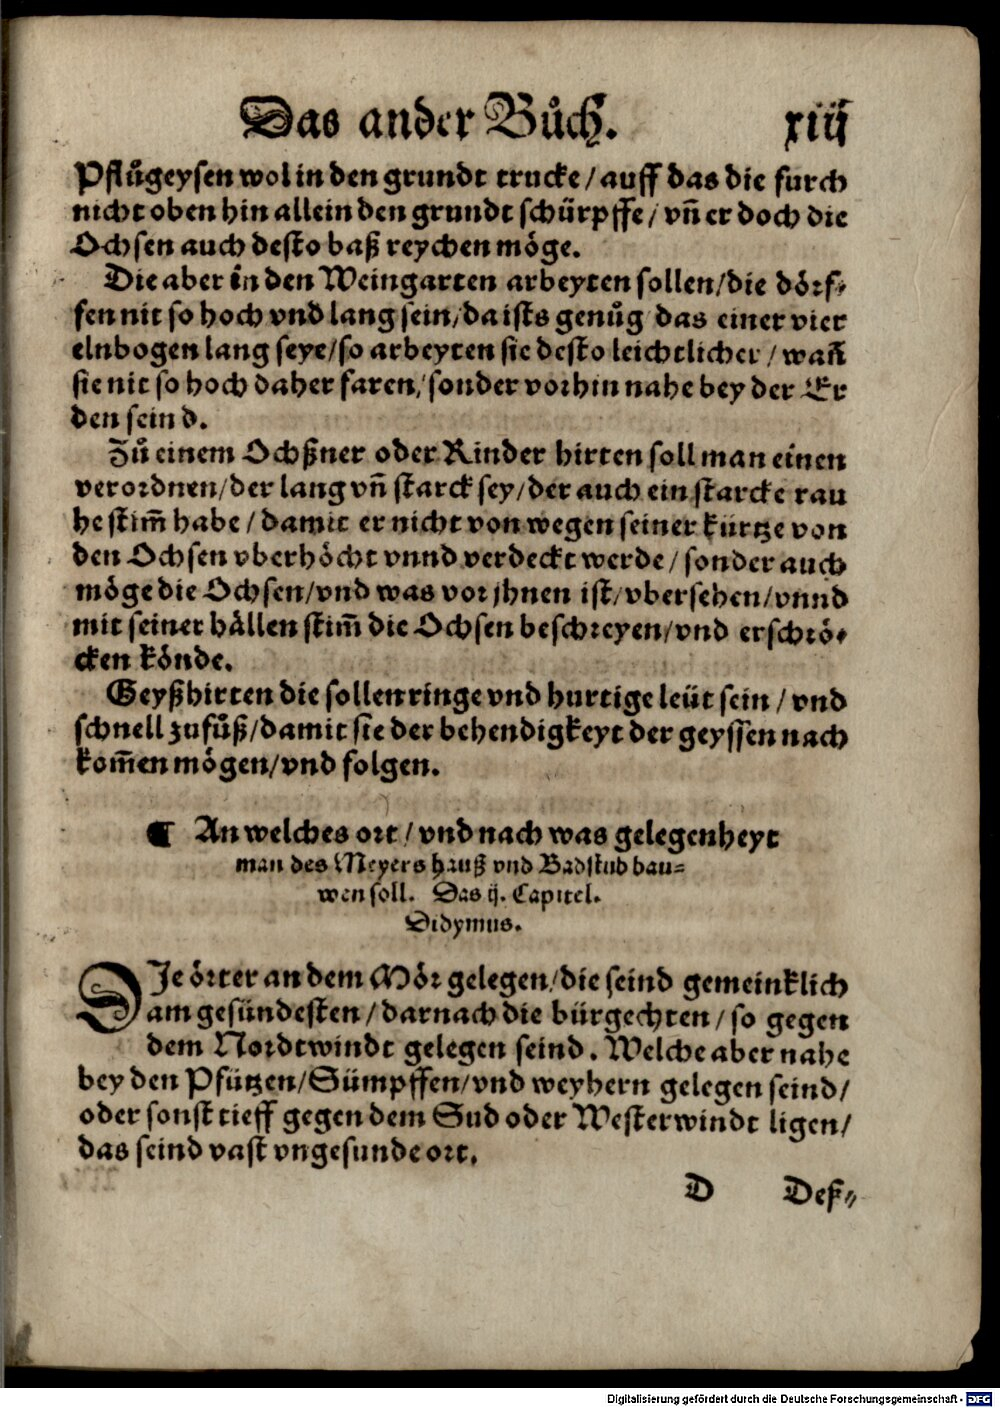 Das ander Bůch. xiij
Pflůgeysen wol in den grundt trucke / auff das die furch
nicht oben hin allein den grundt schürpffe / vñ er doch die
Ochsen auch desto baß reychen möge.
Die aber in den Weingarten arbeyten sollen / die dörf-
fen nit so hoch vnd lang sein / da ists genůg das einer vier
elnbogen lang seye / so arbeyten sie desto leichtlicher / wañ
sie nit so hoch daher faren / sonder vorhin nahe bey der Er
den seind.
Zů einem Ochßner oder Rinder hirten soll man einen
verordnen / der lang vñ starck sey / der auch ein starcke rau
he stim̃ habe / damit er nicht von wegen seiner kürtze von
den Ochsen vberhöcht vnnd verdeckt werde / sonder auch
möge die Ochsen / vnd was vor jhnen ist / vbersehen / vnnd
mit seiner hällen stim̃ die Ochsen beschreyen / vnd erschrö-
cken könde.
Geyßhirten die sollen ringe vnd hurtige leüt sein / vnd
schnell zufůß / damit sie der behendigkeyt der geyssen nach
kom̃en mögen / vnd folgen.
¶ An welches ort / vnd nach was gelegenheyt
man des Meyers hauß vnd Badstub bau-
wen soll. Das ij. Capitel.
Didymus.
DIe örter an dem Mör gelegen / die seind gemeinklich
am gesündesten / darnach die bürgechten / so gegen
dem Nordtwindt gelegen seind. Welche aber nahe
bey den Pfützen / Sümpffen / vnd weyhern gelegen seind /
oder sonst tieff gegen dem Sud oder Westerwindt ligen /
das seind vast vngesunde ort.
D Deß-
Digitalisierung gefördert durch die Deutsche Forschungsgemeinschaft - DFG